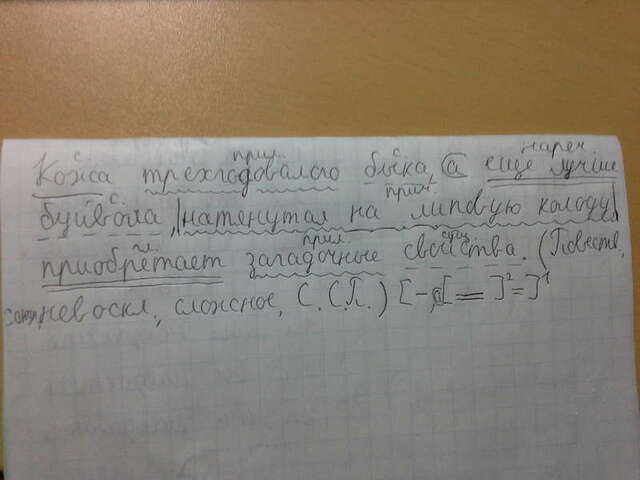 с. прил. с. нареч.
Кожа трехгодовалого быка, а еще лучше
с. прич.
буйвола, |натенутая на липовую колоду|
гл. прил. сущ.
приобретает загадочные свойства. (Повеств.,
невоскл., сложное, (С.С.П.) [-, а[=]²=]¹